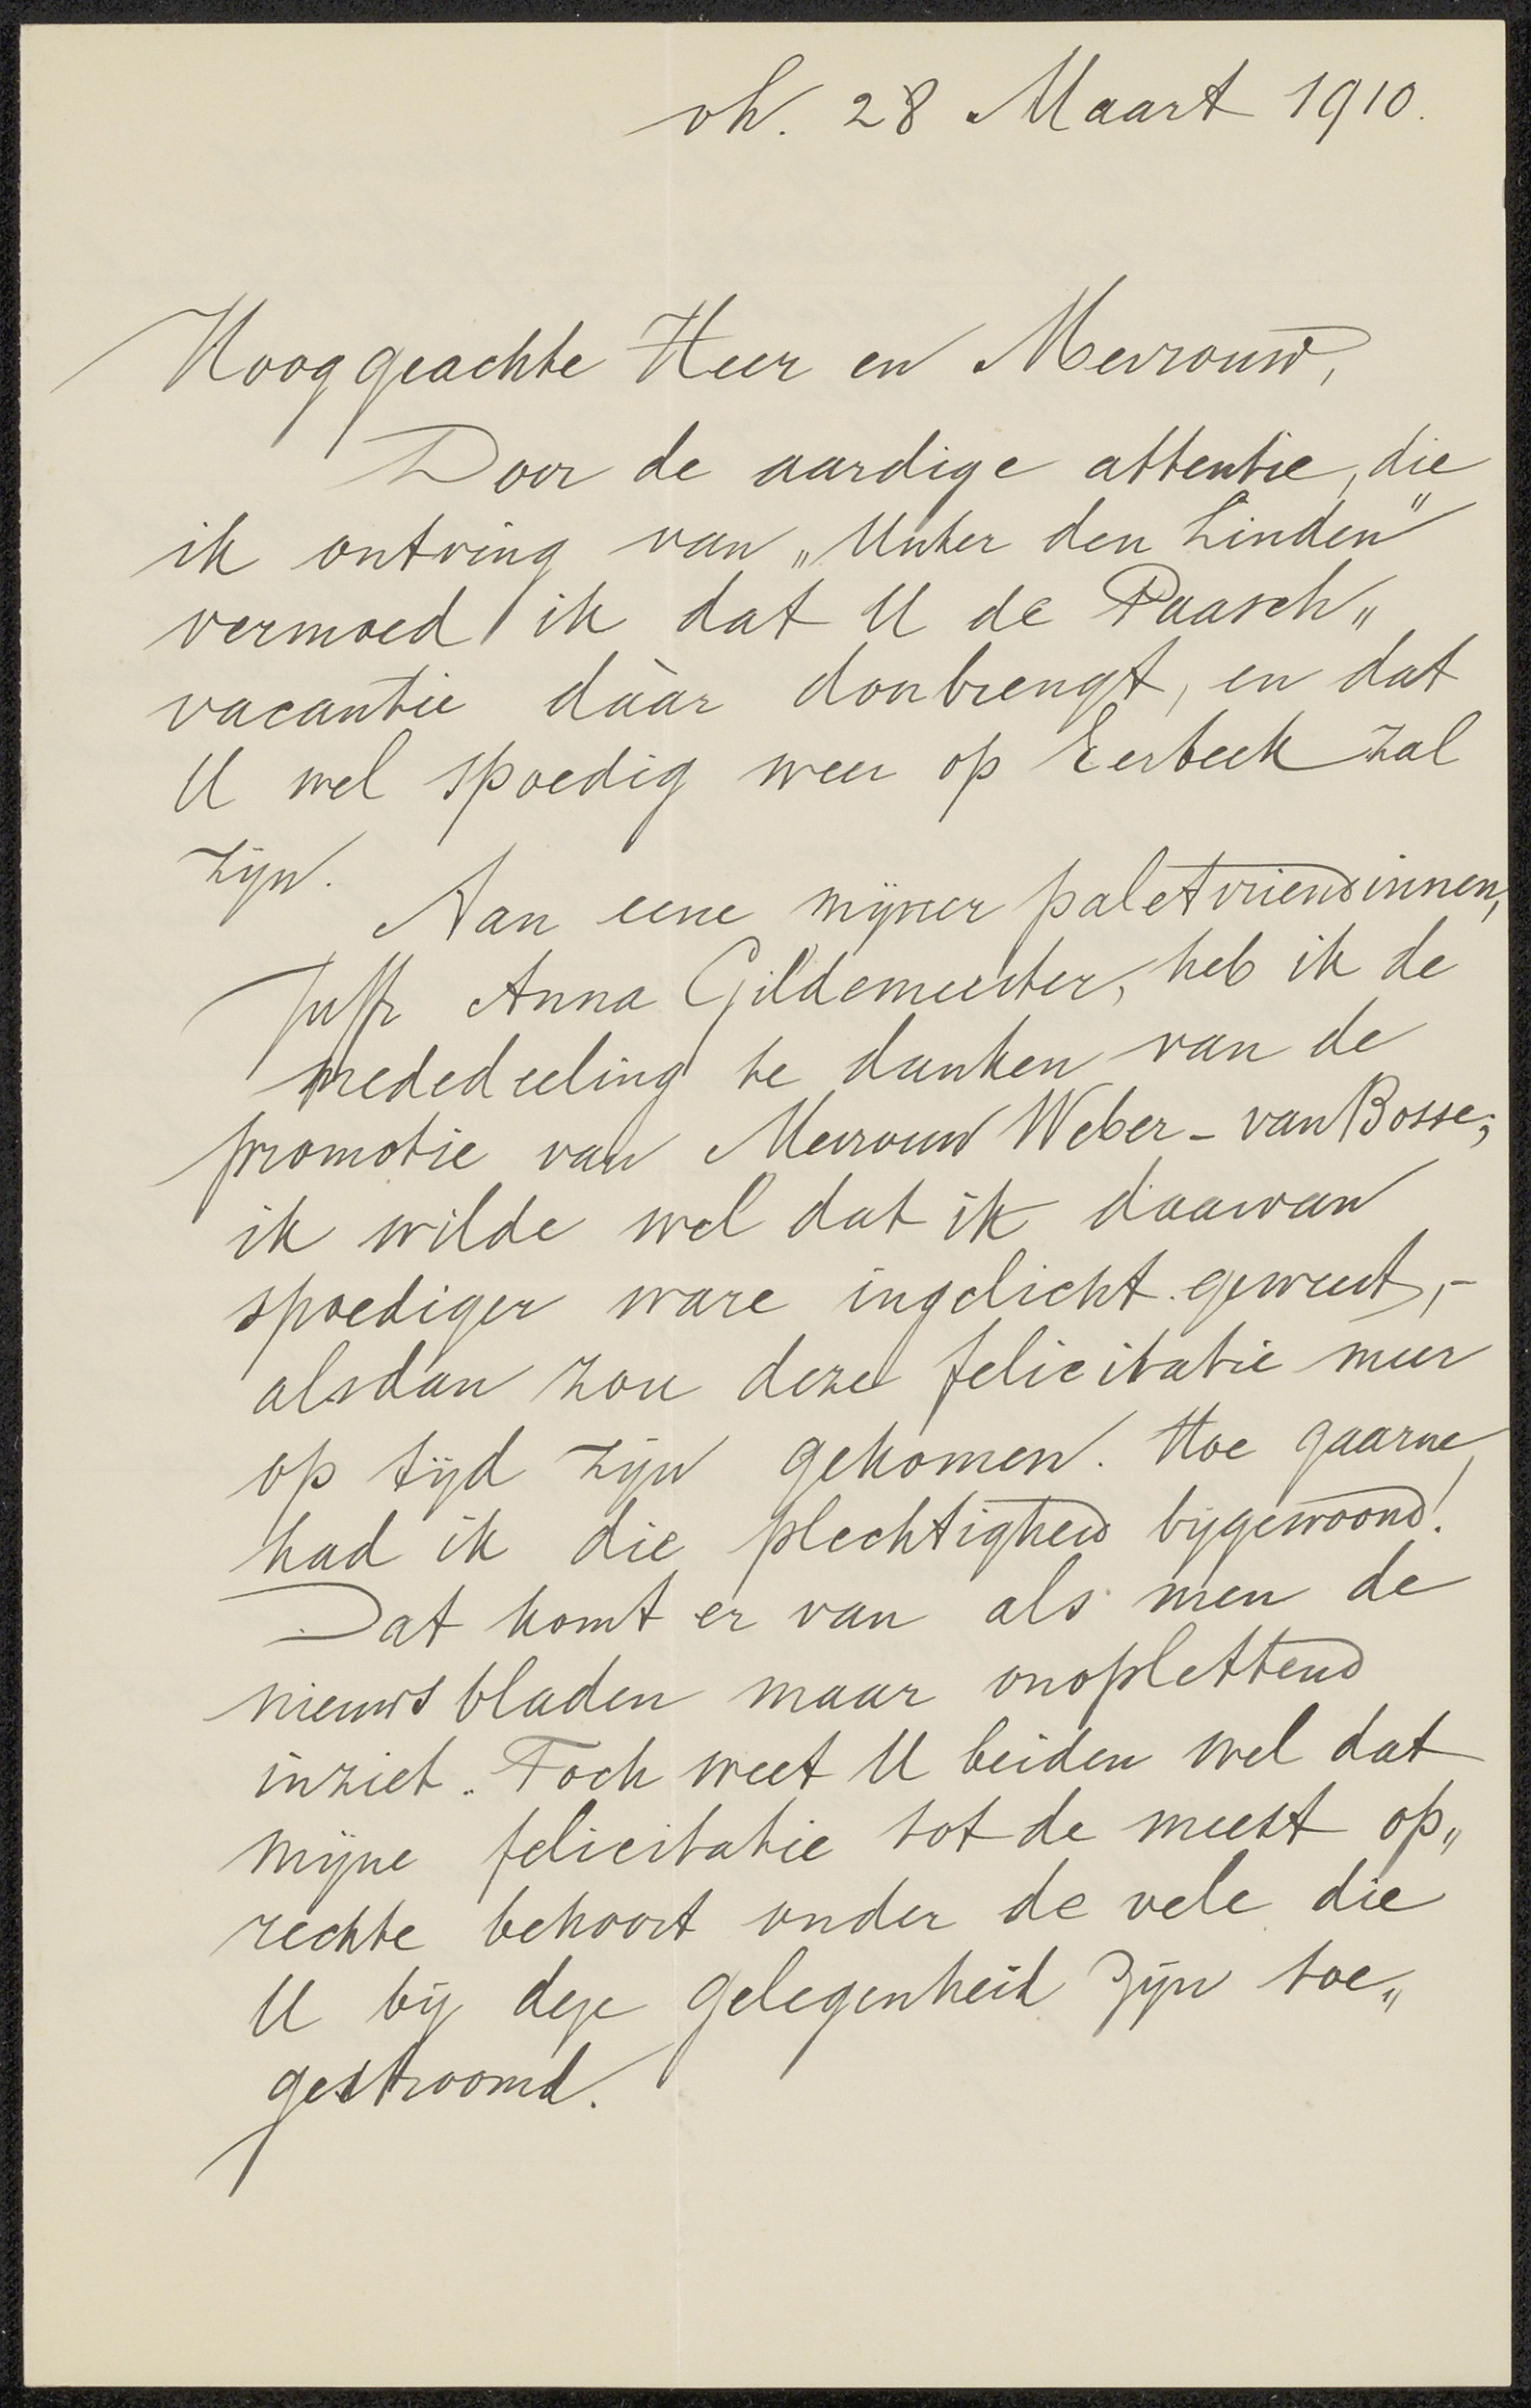 vh. 28 Maart 1910.
Hooggeachte Heer en Mevrouw,
Door de aardige attentie, die
ik ontving van „Unter den Linden"
vermoed ik dat U de Paasch„
vacantie dààr doorbrengt, en dat
U wel spoedig weer op Eerbeek zal
zijn.
Aan eene mijner paletvriendinnen,
Juffr Anna Gildemeester, heb ik de
mededeeling te danken van de
promotie van Mevrouw Weber - van Bosse;
ik wilde wel dat ik daarvan
spoediger ware ingelicht geweest, -
alsdan zou deze felicitatie meer
op tijd zijn gekomen. Hoe gaarne
had ik die plechtigheid bijgewoond!
Dat komt er van als men de
nieuwsbladen maar onoplettend
inziet. Toch weet U beiden wel dat
mijne felicitatie tot de meest op„
rechte behoort onder de vele die
U bij deze gelegenheid zijn toe„
gestroomd.